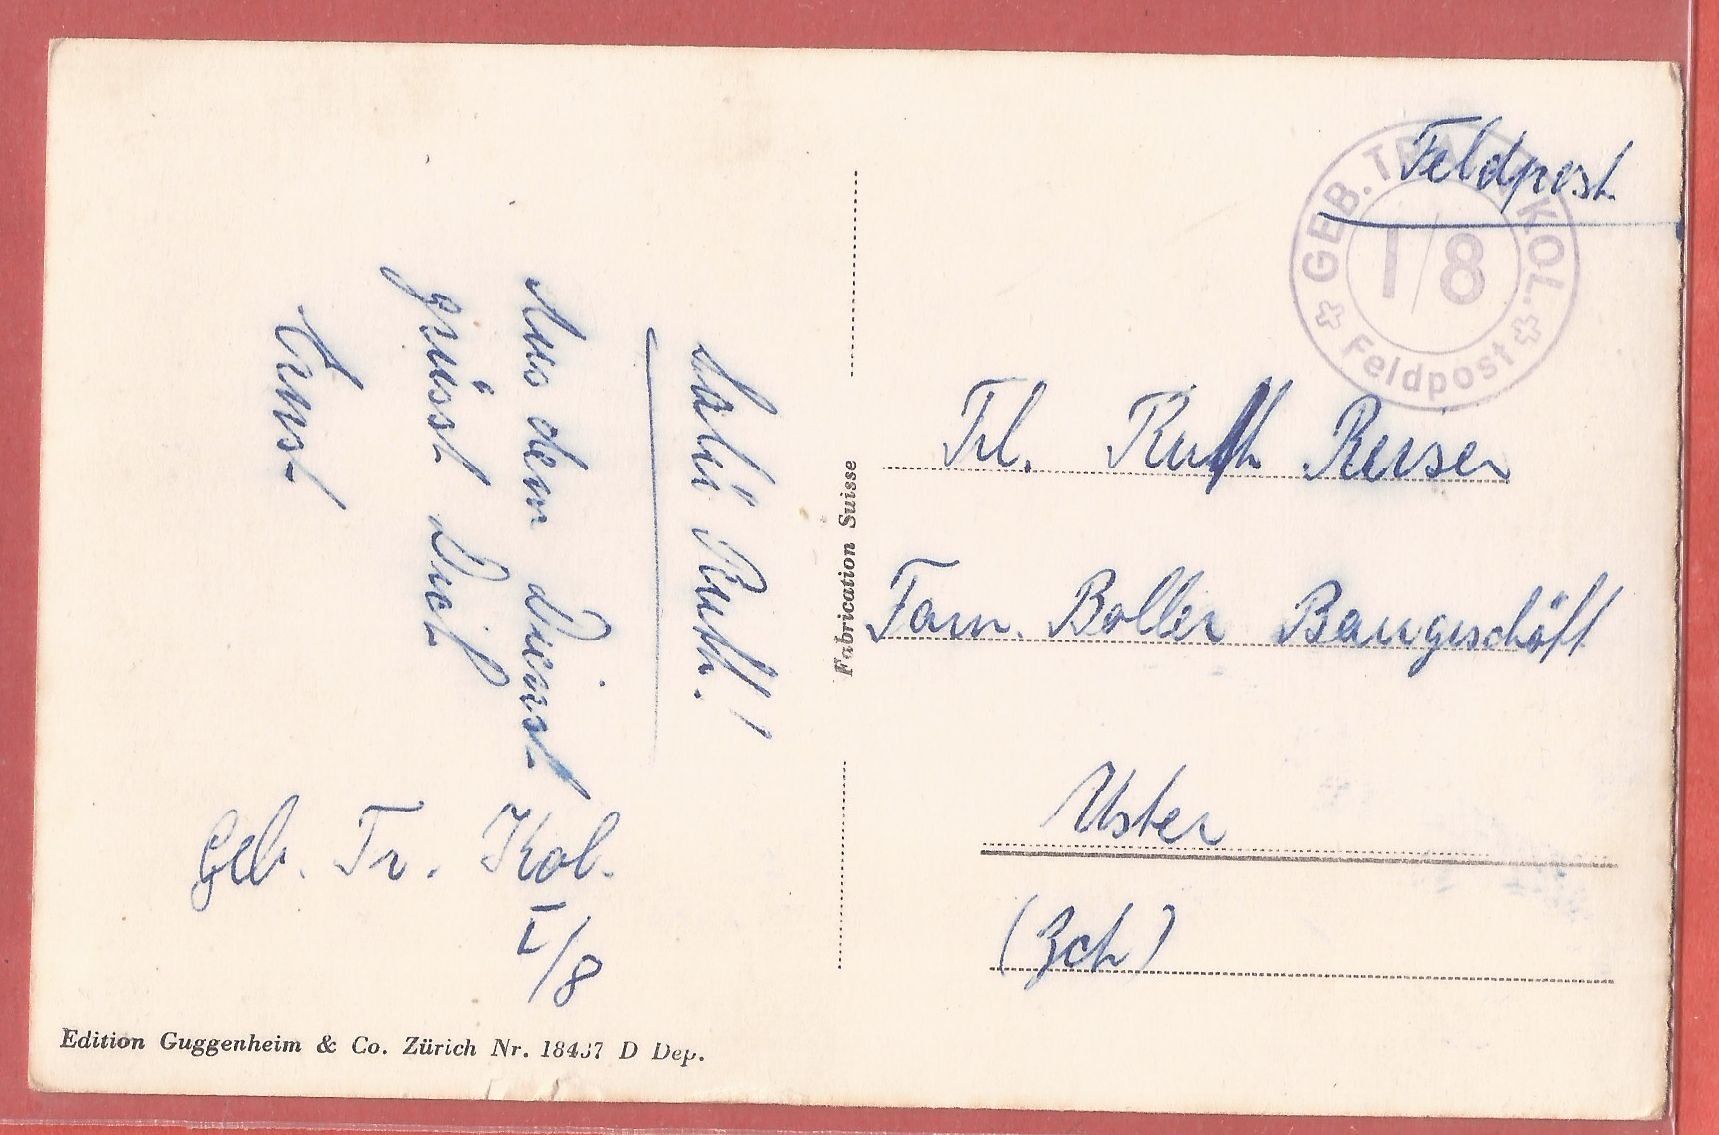 Salü Ruth!
Aus dem Dienst
grüsst Dich
Ernst
Geb. Tr. Kol.
I/8
Edition Guggenheim & Co. Zürich Nr. 18437 D Dep.
Fabrication Suisse
Feldpost
GEB. TRAIN KOL.
I/8
Feldpost
Frl. Ruth
Fam. Boller Baugeschäft
Uster
(Zch)